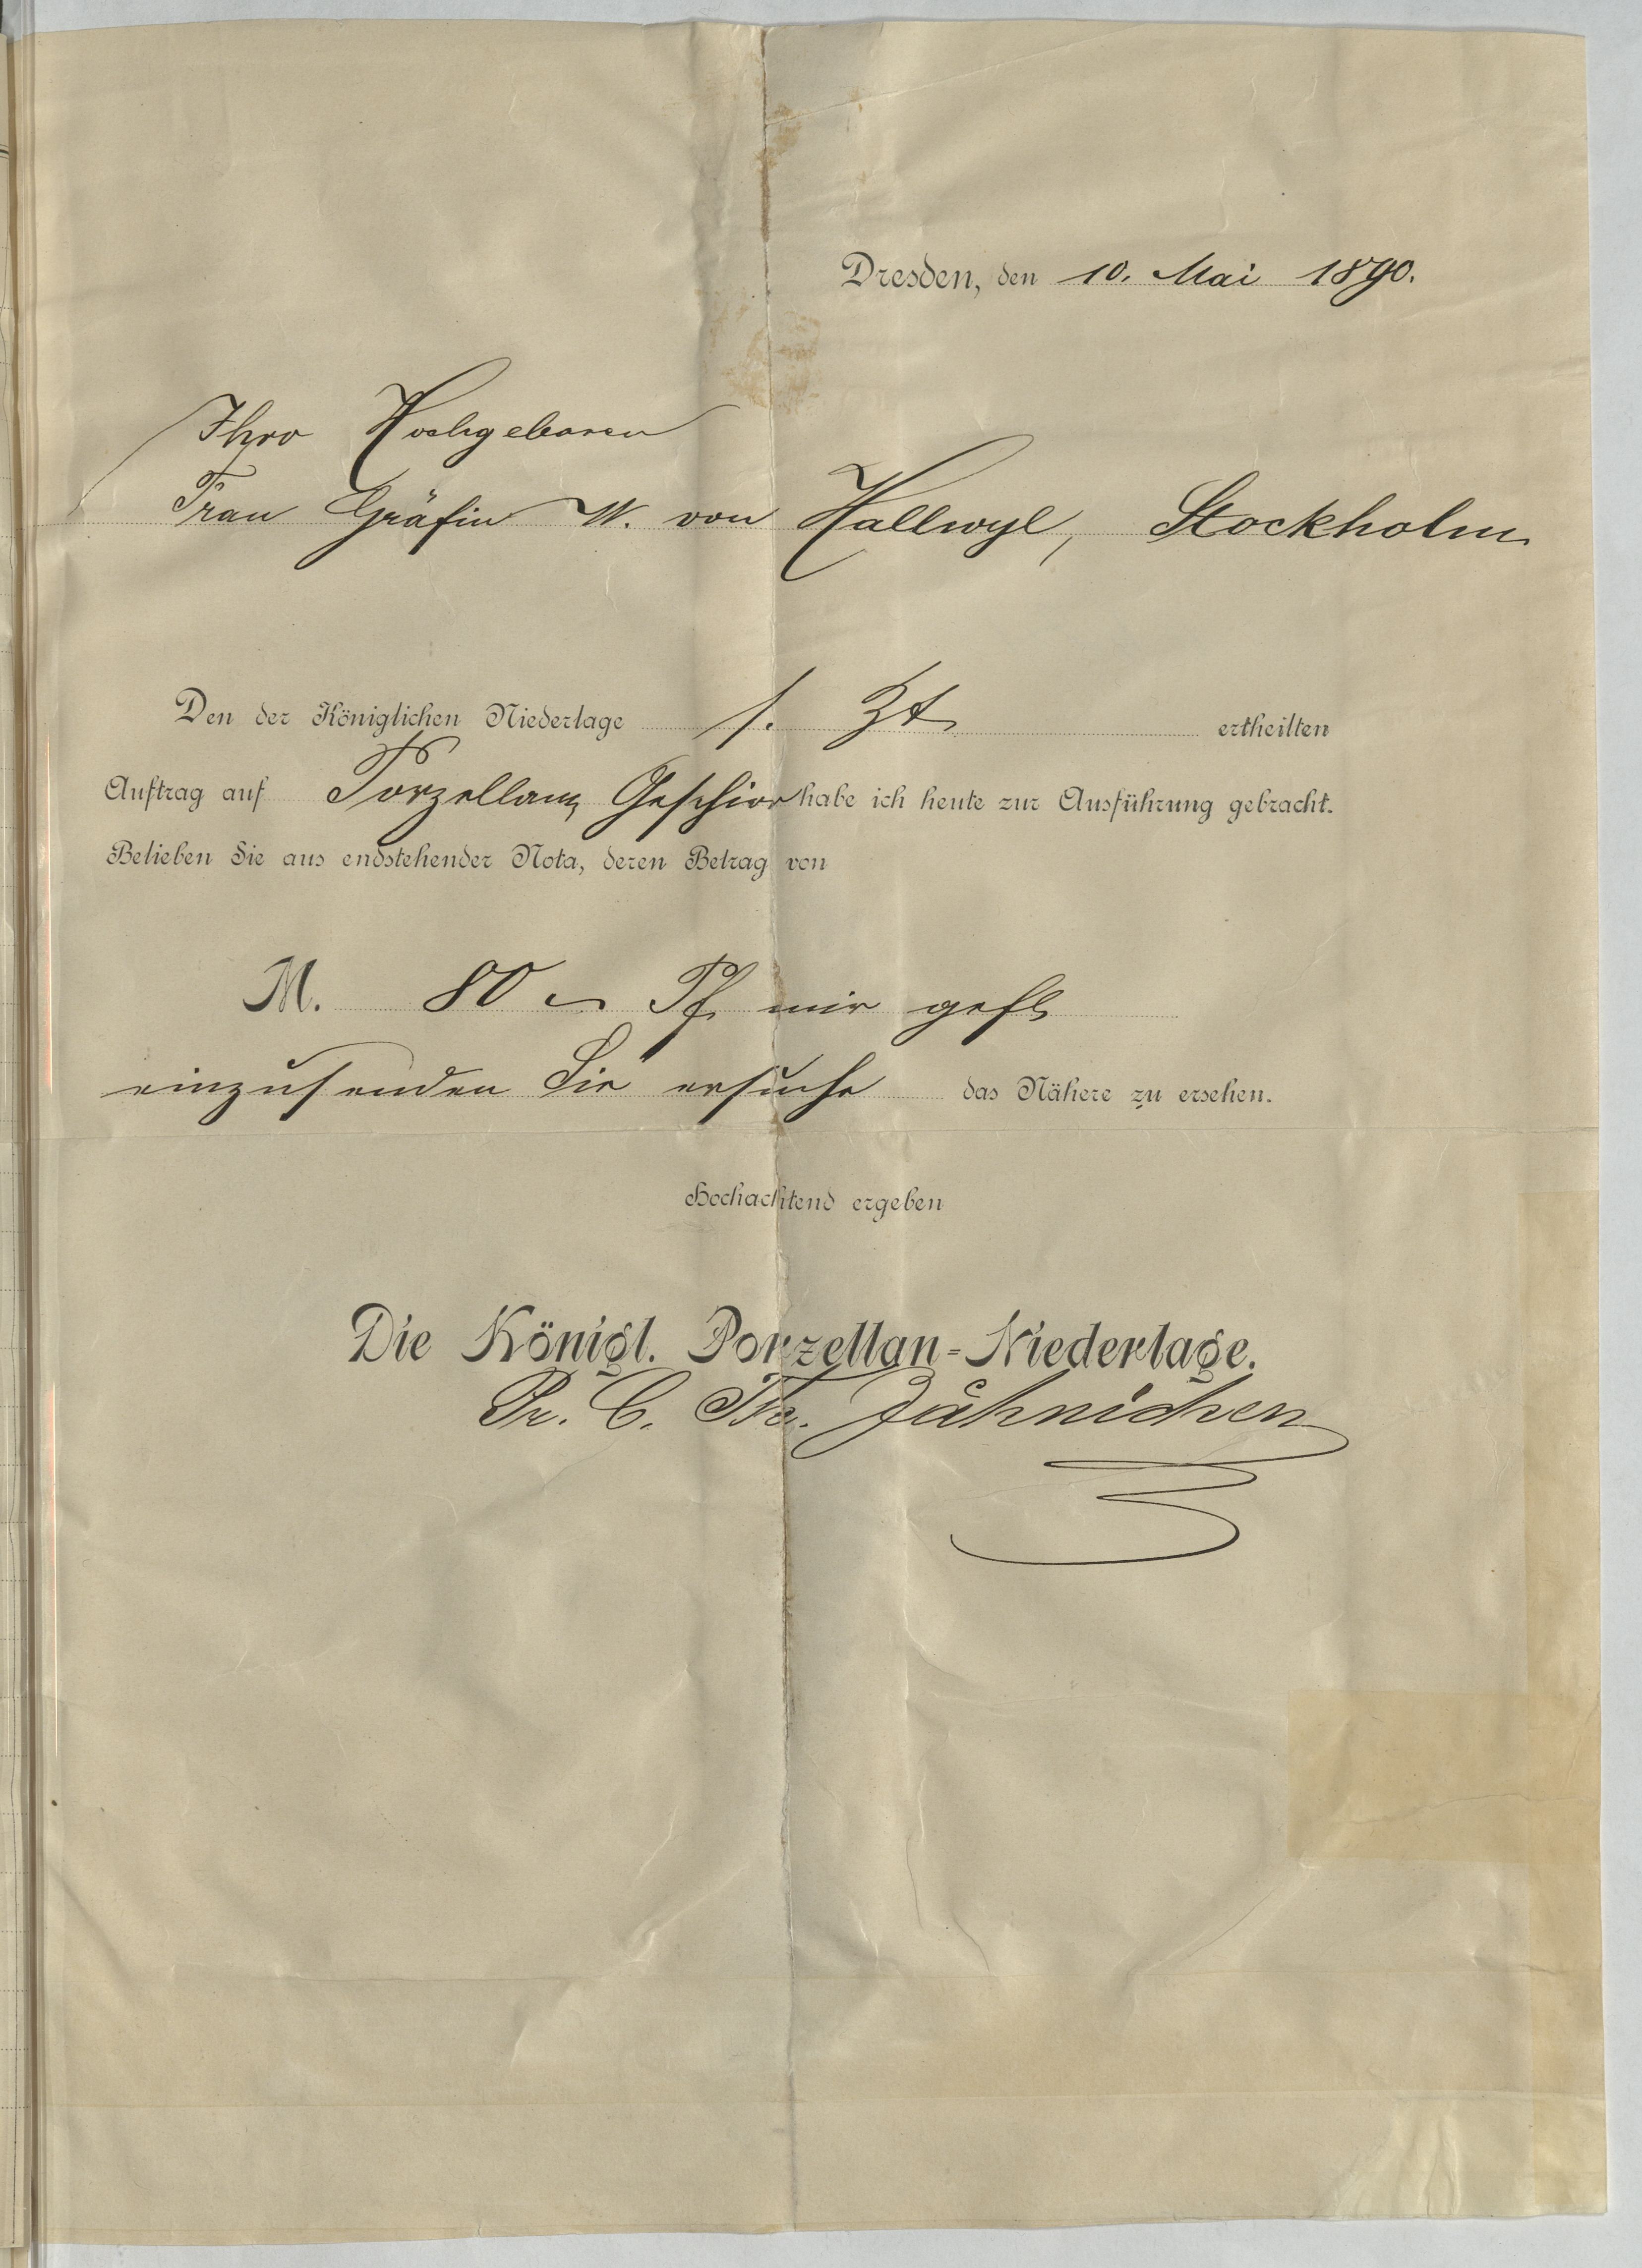 Dresden, den 10. Mai 1890.
Ihro Hochgeboren
Frau Gräfin W. von Hallwyl, Stockholm
Den der Königlichen Niederlage s. Zt. ertheilten
Auftrag auf Porzellan, Geschirr habe ich heute zur Ausführung gebracht.
Belieben Sie aus endstehender Nota, deren Betrag von
M. 80 – Pf. mir gefl.
einzusenden Sie ersuche das Nähere zu ersehen.
Hochachtend ergeben
Die Königl. Porzellan-Niederlage.
Pr. C. Th. Jähnichen